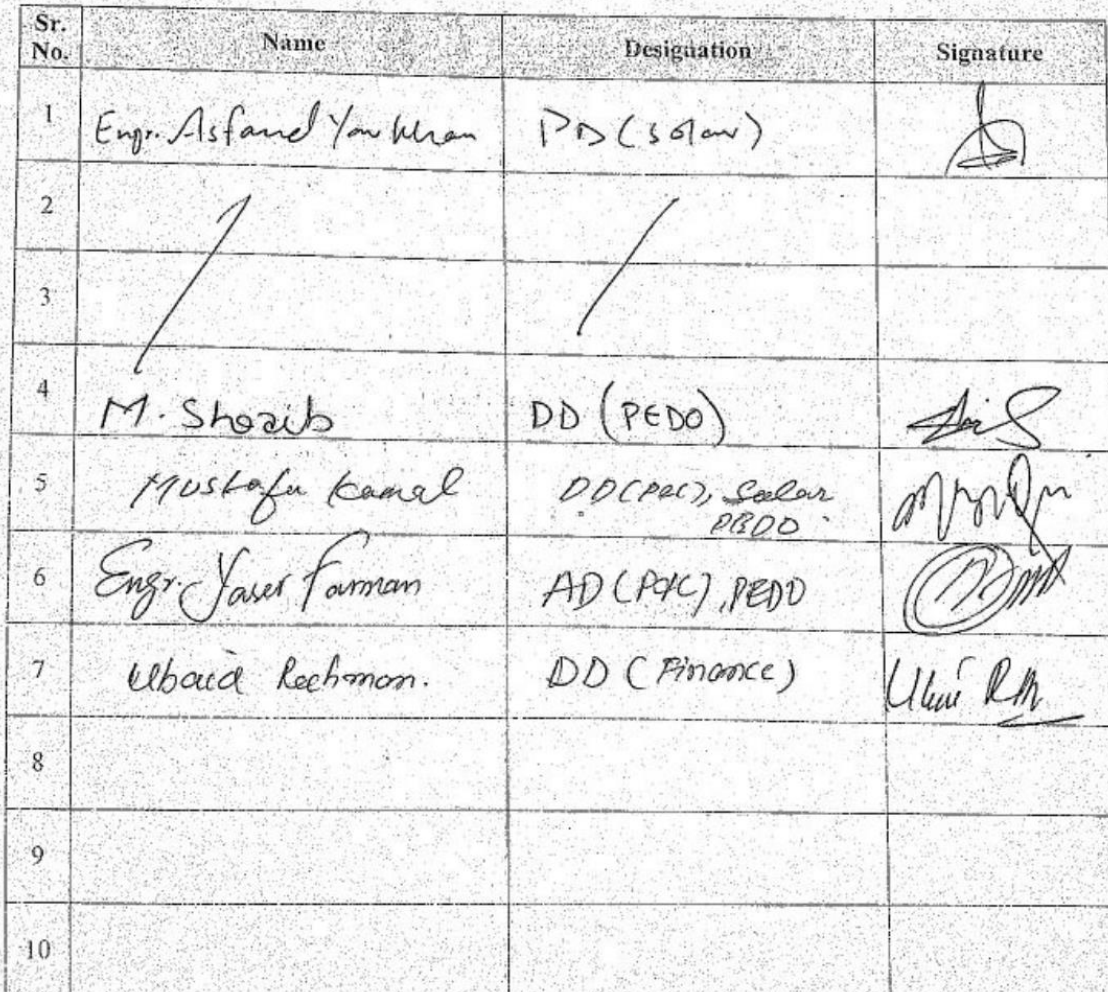 Sr. No. Name Designation Signature
1 Engr. Asfand Yar Khan PD (Solar)
2
3
4 M. Shoaib DD (PEDO)
5 Mustafa Kamal DD (P&C), Solar
PEDO
6 Engr. Yaser Farman AD (P&C), PEDO
7 Ubaid Rehman. DD (Finance)
8
9
10